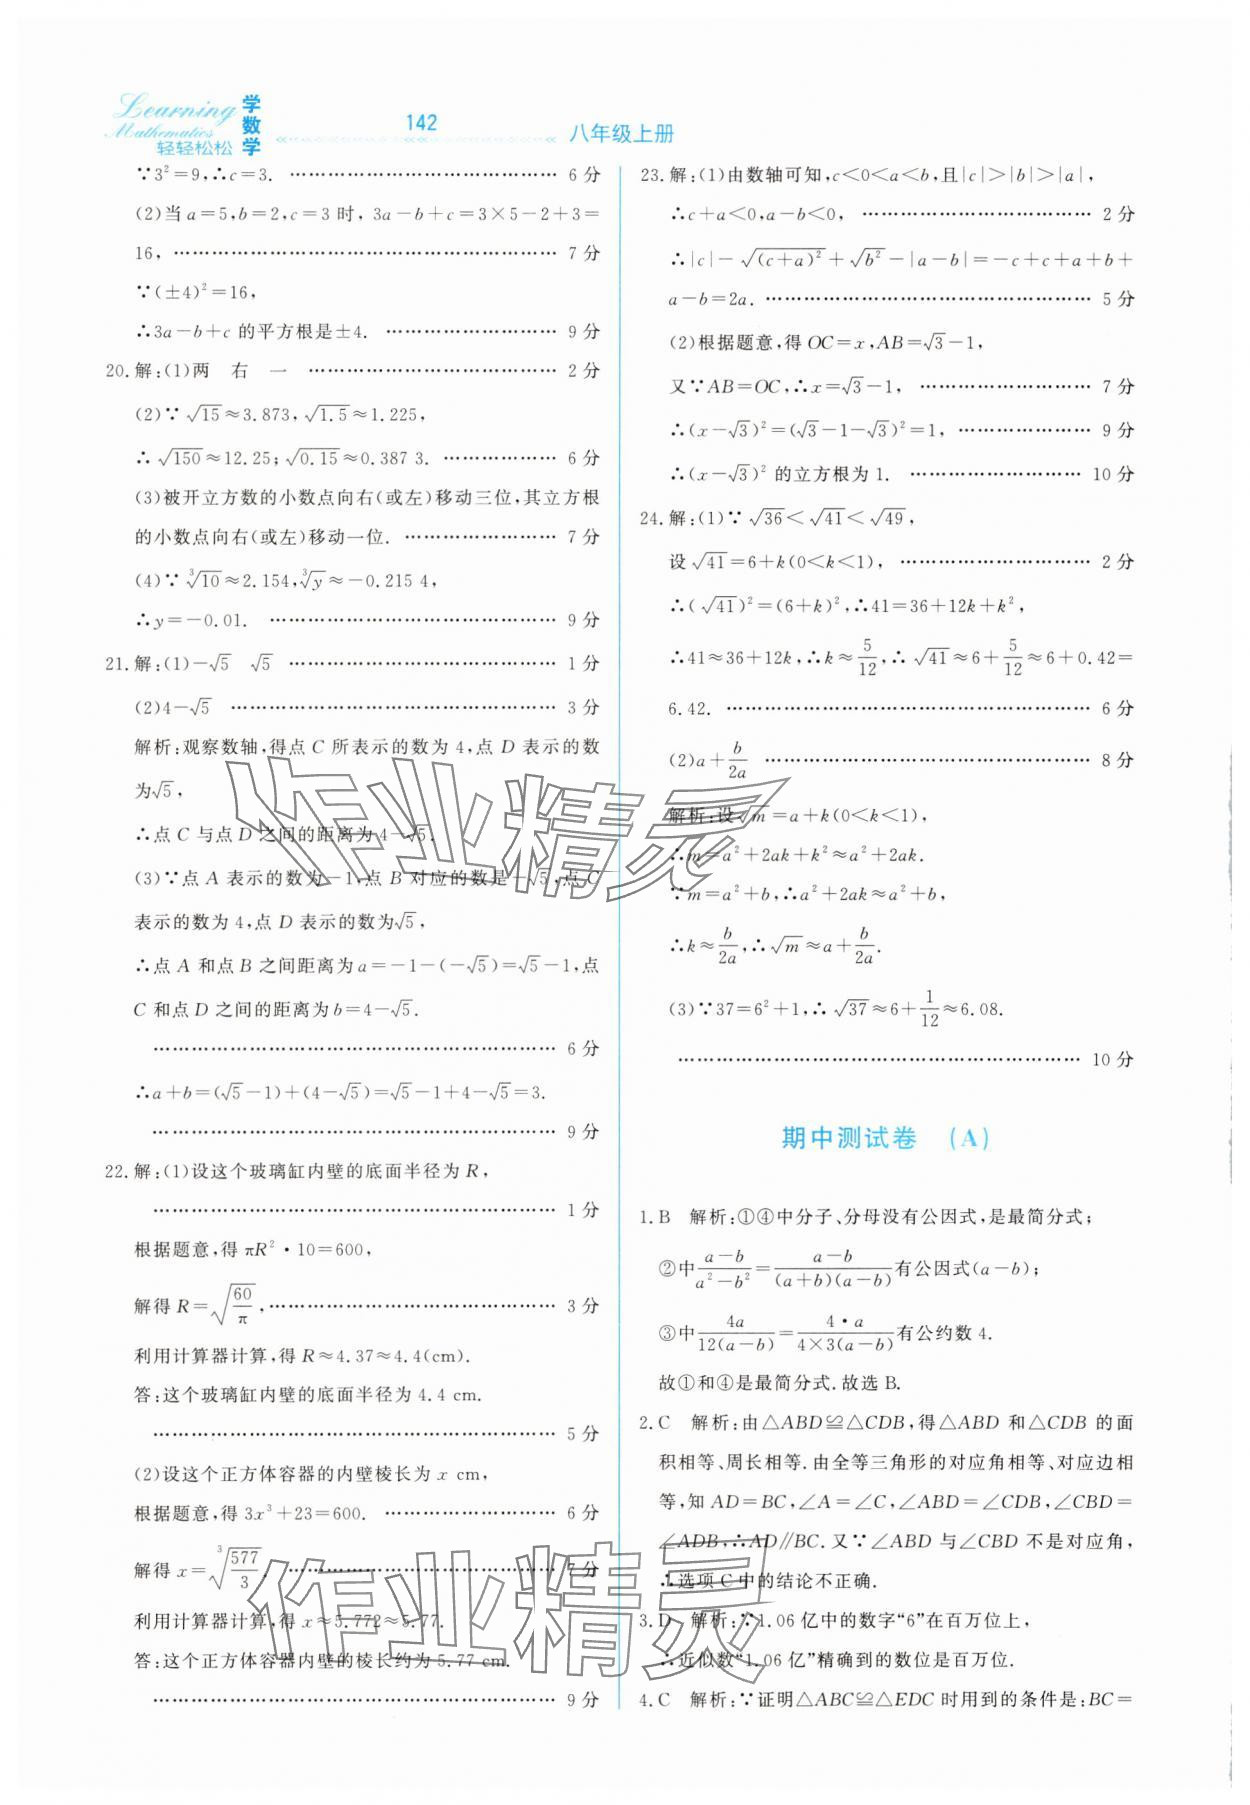 Learning
Mathematics
轻轻松松
学数学
142
八年级上册
∵3²=9,∴c=3. ……………………………………… 6 分
(2)当 a=5,b=2,c=3 时, 3a-b+c=3×5-2+3=
16, ……………………………………………………… 7 分
∵(±4)²=16,
∴3a-b+c 的平方根是±4. ……………………… 9 分
20.解:(1)两 右 一 ………………………………… 2 分
(2)∵√15≈3.873,√1.5≈1.225,
∴√150≈12.25;√0.15≈0.387 3. ……………… 6 分
(3)被开立方数的小数点向右(或左)移动三位,其立方根
的小数点向右(或左)移动一位. …………………… 7 分
(4)∵∛10≈2.154,∛y≈-0.215 4,
∴y=-0.01. ……………………………………… 9 分
21.解:(1)-√5 √5 …………………………………… 1 分
(2)4-√5 …………………………………………… 3 分
解析:观察数轴,得点 C 所表示的数为 4,点 D 表示的数
为√5,
∴点 C 与点 D 之间的距离为 4-√5.
(3)∵点 A 表示的数为-1,点 B 对应的数是-√5,点 C
表示的数为 4,点 D 表示的数为√5,
∴点 A 和点 B 之间距离为 a=-1-(-√5)=√5-1,点
C 和点 D 之间的距离为 b=4-√5.
……………………………………………………… 6 分
∴a+b=(√5-1)+(4-√5)=√5-1+4-√5=3.
……………………………………………………… 9 分
22.解:(1)设这个玻璃缸内壁的底面半径为 R,
……………………………………………………… 1 分
根据题意,得 πR²·10=600,
解得 R=√(60/π), ……………………………………… 3 分
利用计算器计算,得 R≈4.37≈4.4(cm).
答:这个玻璃缸内壁的底面半径为 4.4 cm.
……………………………………………………… 5 分
(2)设这个正方体容器的内壁棱长为 x cm,
根据题意,得 3x³+23=600. ……………………… 6 分
解得 x=∛(577/3) ……………………………………… 7 分
利用计算器计算,得 x≈5.772≈5.77.
答:这个正方体容器内壁的棱长约为 5.77 cm.
……………………………………………………… 9 分
23.解:(1)由数轴可知,c<0<a<b,且|c|>|b|>|a|,
∴c+a<0,a-b<0, ……………………………… 2 分
∴|c|-√(c+a)²+√b²-|a-b|=-c+c+a+b+
a-b=2a. …………………………………………… 5 分
(2)根据题意,得 OC=x,AB=√3-1,
又∵AB=OC,∴x=√3-1, ……………………… 7 分
∴(x-√3)²=(√3-1-√3)²=1, ………………… 9 分
∴(x-√3)² 的立方根为 1. ……………………… 10 分
24.解:(1)∵√36<√41<√49,
设√41=6+k(0<k<1), ………………………… 2 分
∴(√41)²=(6+k)²,∴41=36+12k+k²,
∴41≈36+12k,∴k≈5/12,∴√41≈6+5/12≈6+0.42=
6.42. ………………………………………………… 6 分
(2)a+b/2a …………………………………………… 8 分
解析:设√m=a+k(0<k<1),
∴m=a²+2ak+k²≈a²+2ak.
∵m=a²+b,∴a²+2ak≈a²+b,
∴k≈b/2a,∴√m≈a+b/2a.
(3)∵37=6²+1,∴√37≈6+1/12≈6.08.
……………………………………………………… 10 分
期中测试卷 (A)
1.B 解析:①④中分子、分母没有公因式,是最简分式;
②中(a-b)/(a²-b²)=(a-b)/((a+b)(a-b))有公因式(a-b);
③中4a/(12(a-b))=(4·a)/(4×3(a-b))有公约数 4.
故①和④是最简分式.故选 B.
2.C 解析:由△ABD≌△CDB,得△ABD 和△CDB 的面
积相等、周长相等.由全等三角形的对应角相等、对应边相
等,知 AD=BC,∠A=∠C,∠ABD=∠CDB,∠CBD=
∠ADB,∴AD∥BC.又∵∠ABD 与∠CBD 不是对应角,
∴选项 C 中的结论不正确.
3.D 解析:∵1.06 亿中的数字“6”在百万位上,
∴近似数“1.06 亿”精确到的数位是百万位.
4.C 解析:∵证明△ABC≌△EDC 时用到的条件是:BC=
作业精灵
作业精灵